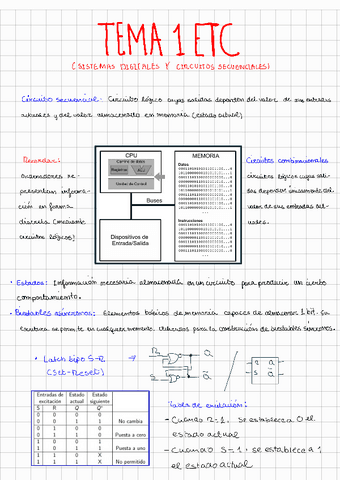 TEMA 1 ETC
(SISTEMAS DIGITALES Y CIRCUITOS SECUENCIALES)
Circuito secuencial: Circuito lógico cuyas salidas dependen del valor de sus entradas
actuales y del valor almacenado en memoria (estado actual)
Recordar:
Ordenadores re-
presentan informa-
ción en forma
discreta (mediante
circuitos lógicos)
CPU
Camino de datos
Registros
Unidad de Control
Buses
Dispositivos de
Entrada/Salida
MEMORIA
Datos
Instrucciones
Circuitos combinacionales
circuitos lógicos cuyas sali-
das dependen únicamente del
valor de sus entradas act-
uales.
· Estados: Información necesaria almacenada en un circuito para producir un cierto
comportamiento.
· Biestables asíncronos: Elementos básicos de memoria capaces de almacenar 1 bit. Su
escritura se permite en cualquier momento. Utilizados para la construcción de biestables síncronos.
· Latch tipo S-R
(Set-Reset)
R
S
Q
Q̄
R Q
S Q̄
Entradas de excitación Estado actual Estado siguiente
S R Q Q⁺
0 0 0 0
0 0 1 1 No cambia
0 1 0 0
0 1 1 0 Puesta a cero
1 0 0 1
1 0 1 1 Puesta a uno
1 1 0 X
1 1 1 X No permitido
Tabla de excitación:
- Cuando R=1, se establece a 0 el
estado actual
- Cuando S=1, se establece a 1
el estado actual